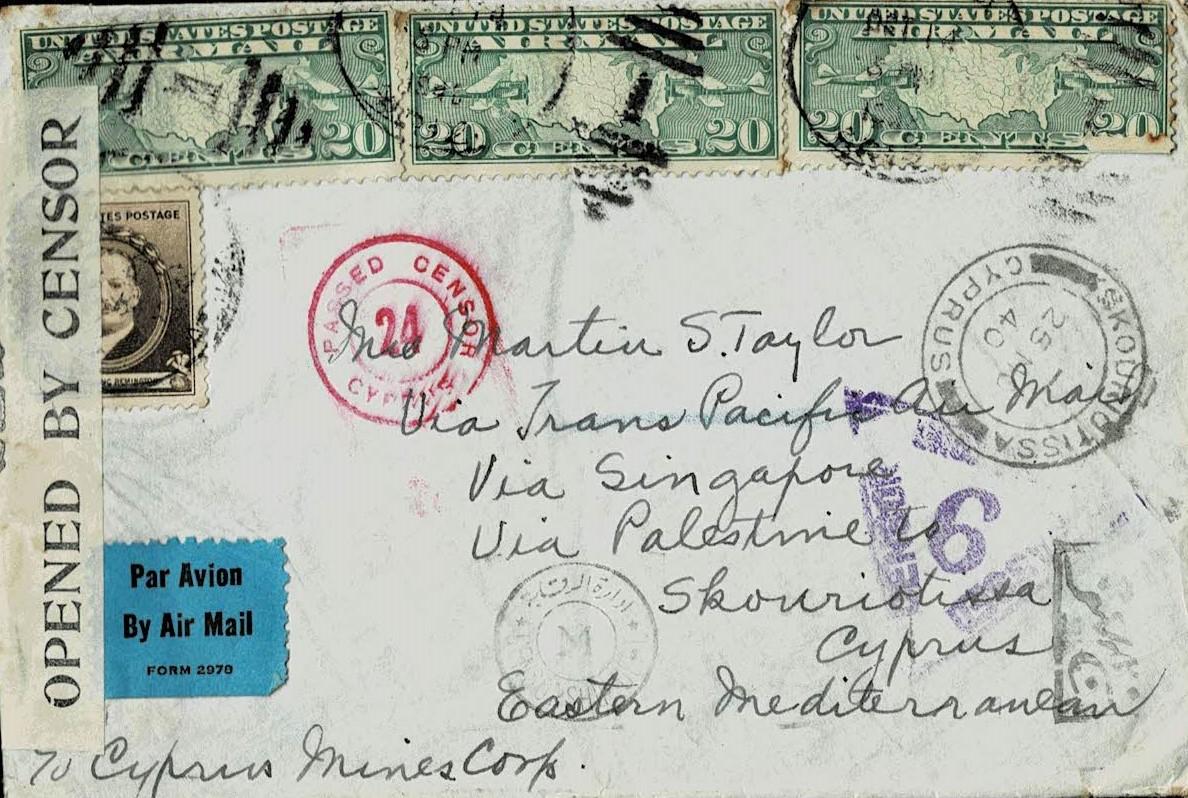 UNITED STATES POSTAGE
AIR MAIL
20
CENTS
UNITED STATES POSTAGE
AIR MAIL
20 20
CENTS
UNITED STATES POSTAGE
AIR MAIL
20 20
CENTS
OPENED BY CENSOR
TES POSTAGE
REMINGTON
PASSED CENSOR
24
CYPRUS
SKOURIOTISSA
CYPRUS
25
40
Martin S. Taylor
Via Trans Pacific Air Mail
Via Singapore
Via Palestine to
Skouriotissa
Cyprus
Eastern Mediterranean
6
Par Avion
By Air Mail
FORM 2978
M
To Cyprus Mines Corp.